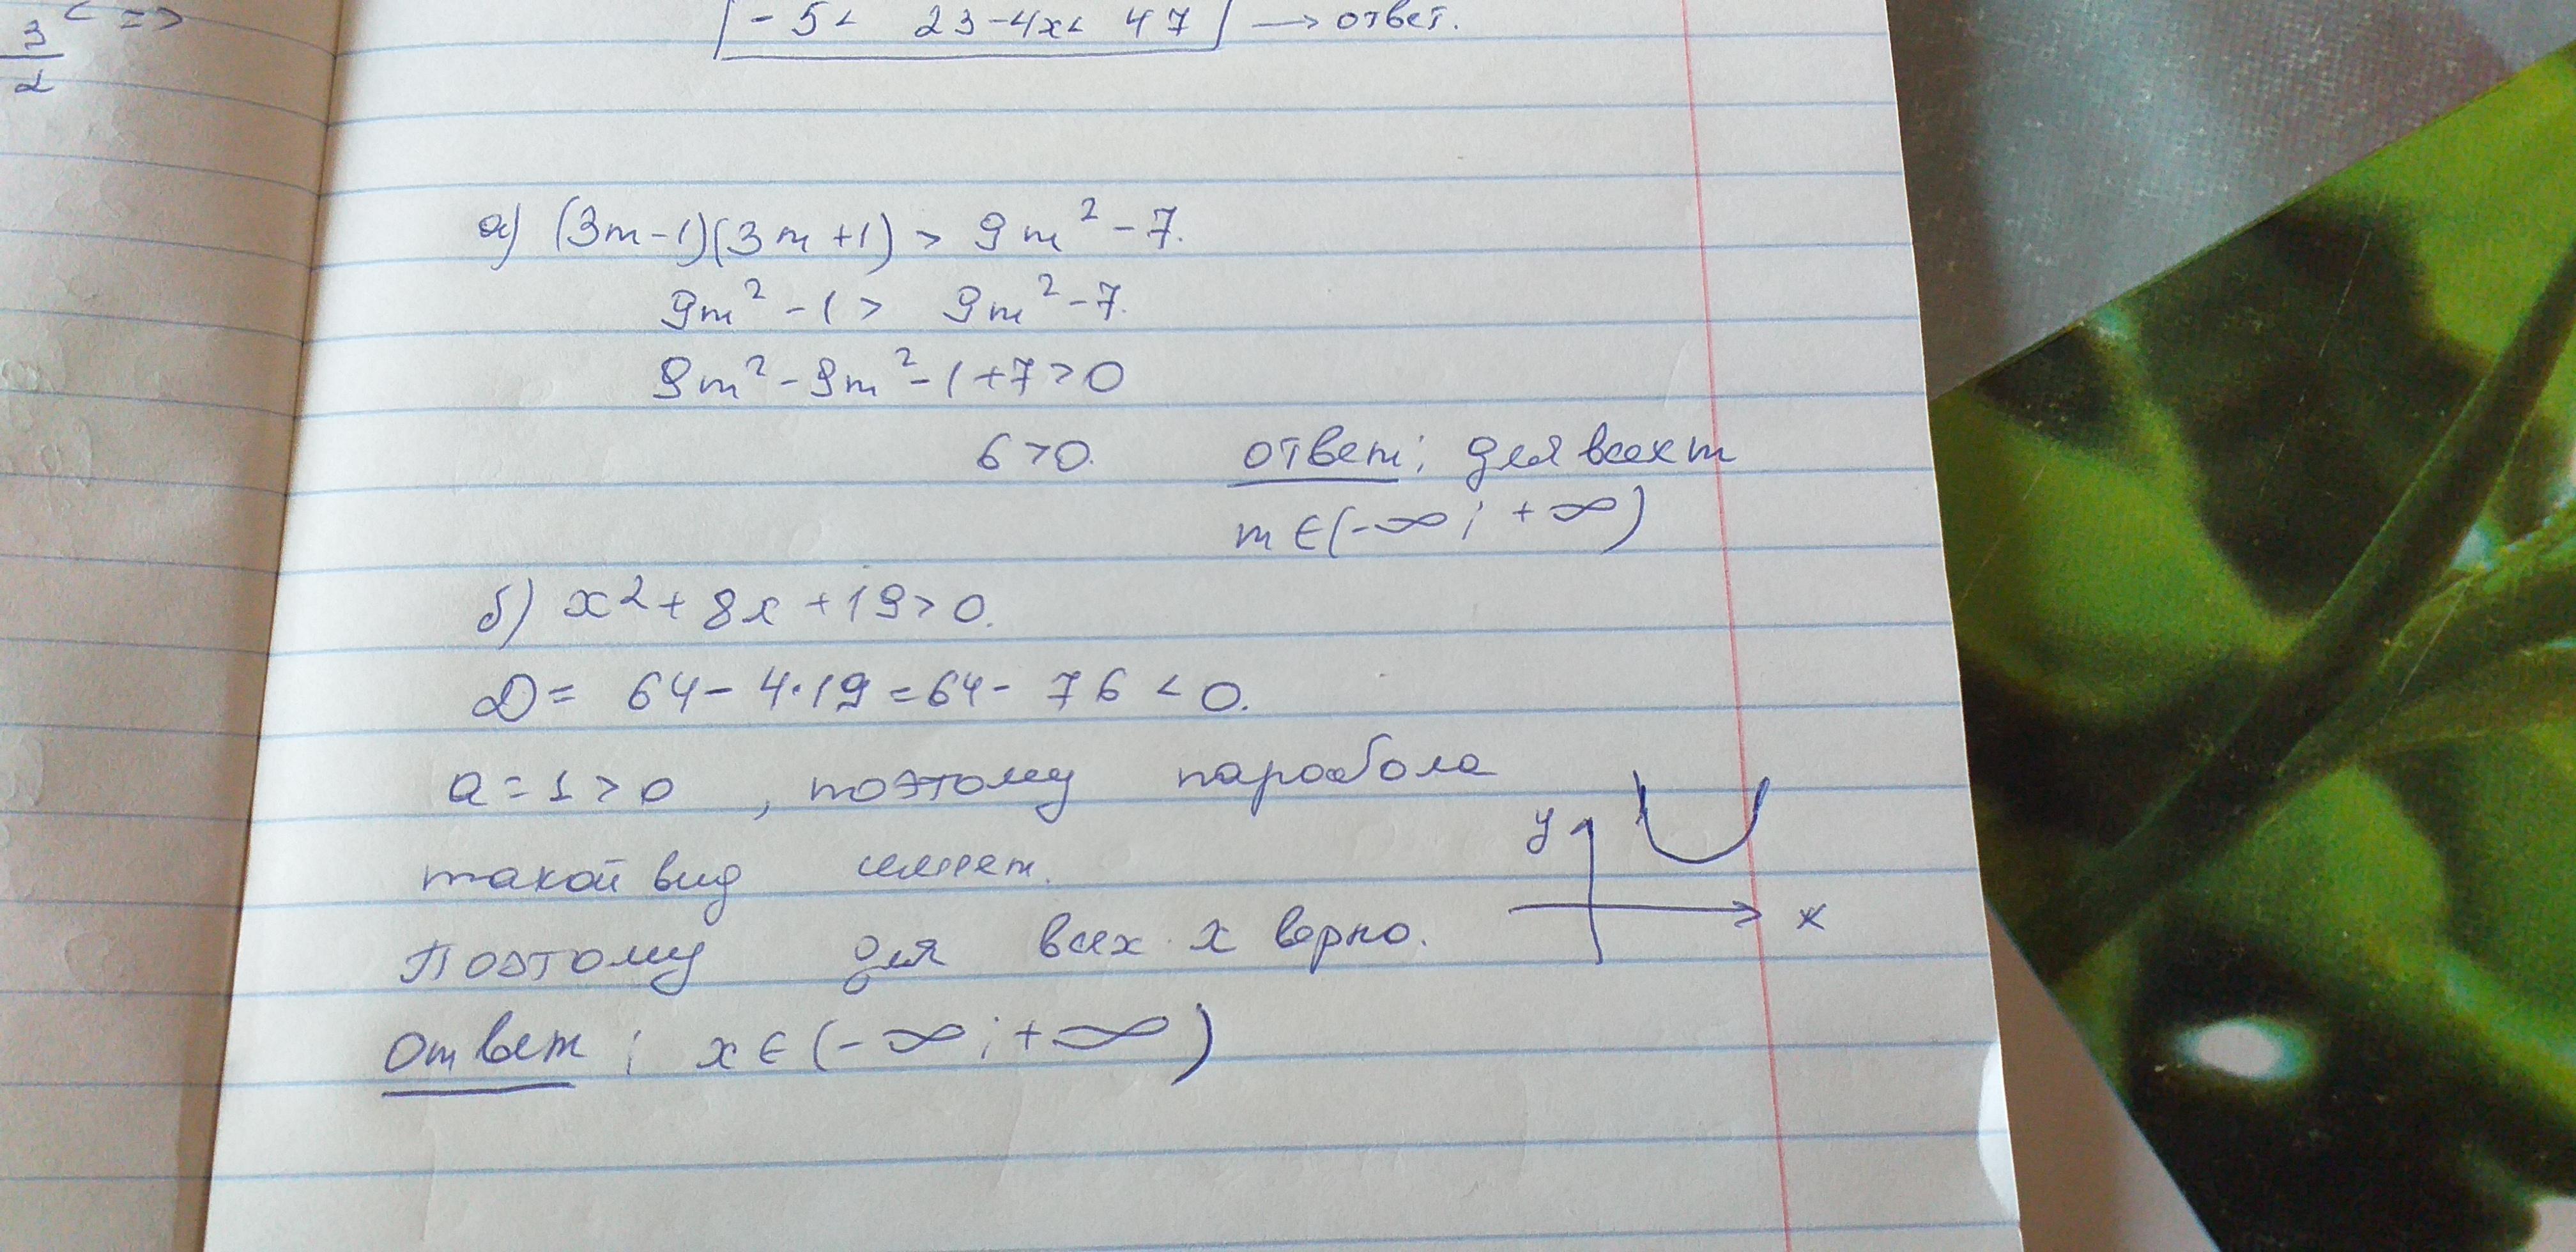 3/2 < =>
-5 < 23-4x < 47 → ответ.
а) (3m-1)(3m+1) > 9m² - 7.
9m² - 1 > 9m² - 7.
9m² - 9m² - 1 + 7 > 0
6 > 0. ответ: для всех m
m ∈ (-∞; +∞)
б) x² + 8x + 19 > 0.
D = 64 - 4·19 = 64 - 76 < 0.
a = 1 > 0, поэтому парабола
такой вид имеет.
y
x
Поэтому для всех x верно.
Ответ: x ∈ (-∞; +∞)